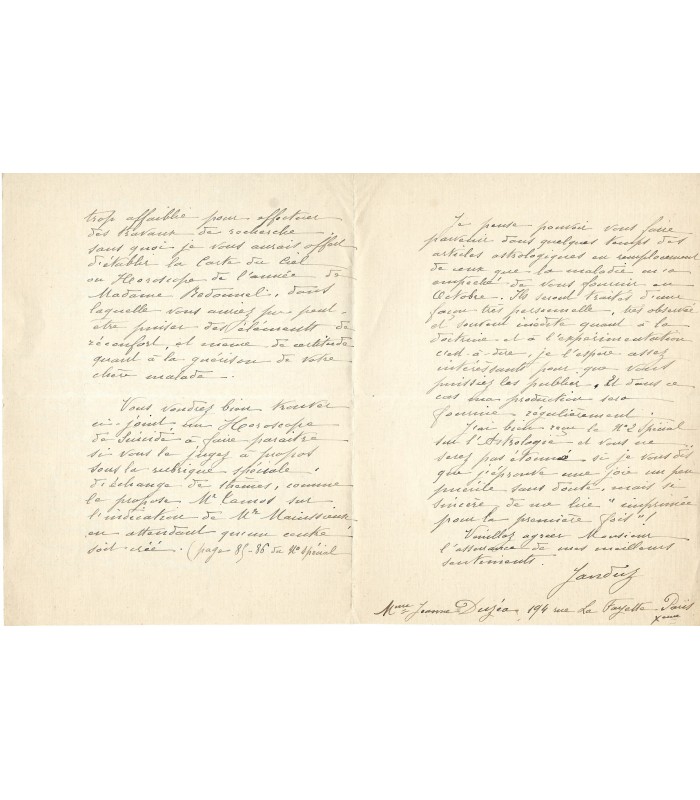 trop affaiblie pour effectuer
des travaux de recherche
sans quoi je vous aurais offert
d'établir la Carte du Ciel
ou Horoscope de l'année de
Madame dans
laquelle vous auriez pu peut-
être puiser des éléments de
réconfort, et même de certitude
quant à la guérison de votre
chère malade.
Vous voudrez bien trouver
ci-joint un Horoscope
de Suicidé à faire paraître
si vous le jugez à propos
sous la rubrique spéciale
d'échange de thèmes, comme
le propose Mr sur
l'indication de Mr
en attendant qu'un centre
soit créé. (page 85-86 du No spécial
Je pense pouvoir vous faire
parvenir dans quelques temps des
articles astrologiques en remplacement
de ceux que la maladie m'a
empêché de vous fournir en
Octobre. Ils seront traités d'une
façon très personnelle, très observée
et souvent inédite quant à la
doctrine et à l'expérimentation
c'est-à-dire, je l'espère assez
intéressants pour que vous
puissiez les publier. Et dans ce
cas ma production sera
fournie régulièrement.
J'ai bien reçu le No 2 spécial
sur l'Astrologie et vous ne
serez pas étonné si je vous dis
que j'éprouve une joie un peu
puérile sans doute, mais si
sincère de me lire "imprimée
pour la première fois"!
Veuillez agréer Monsieur
l'assurance de mes meilleurs
sentiments.
Janduz
Mme Jeanne Duzéa 194 rue La Fayette Paris
Xeme